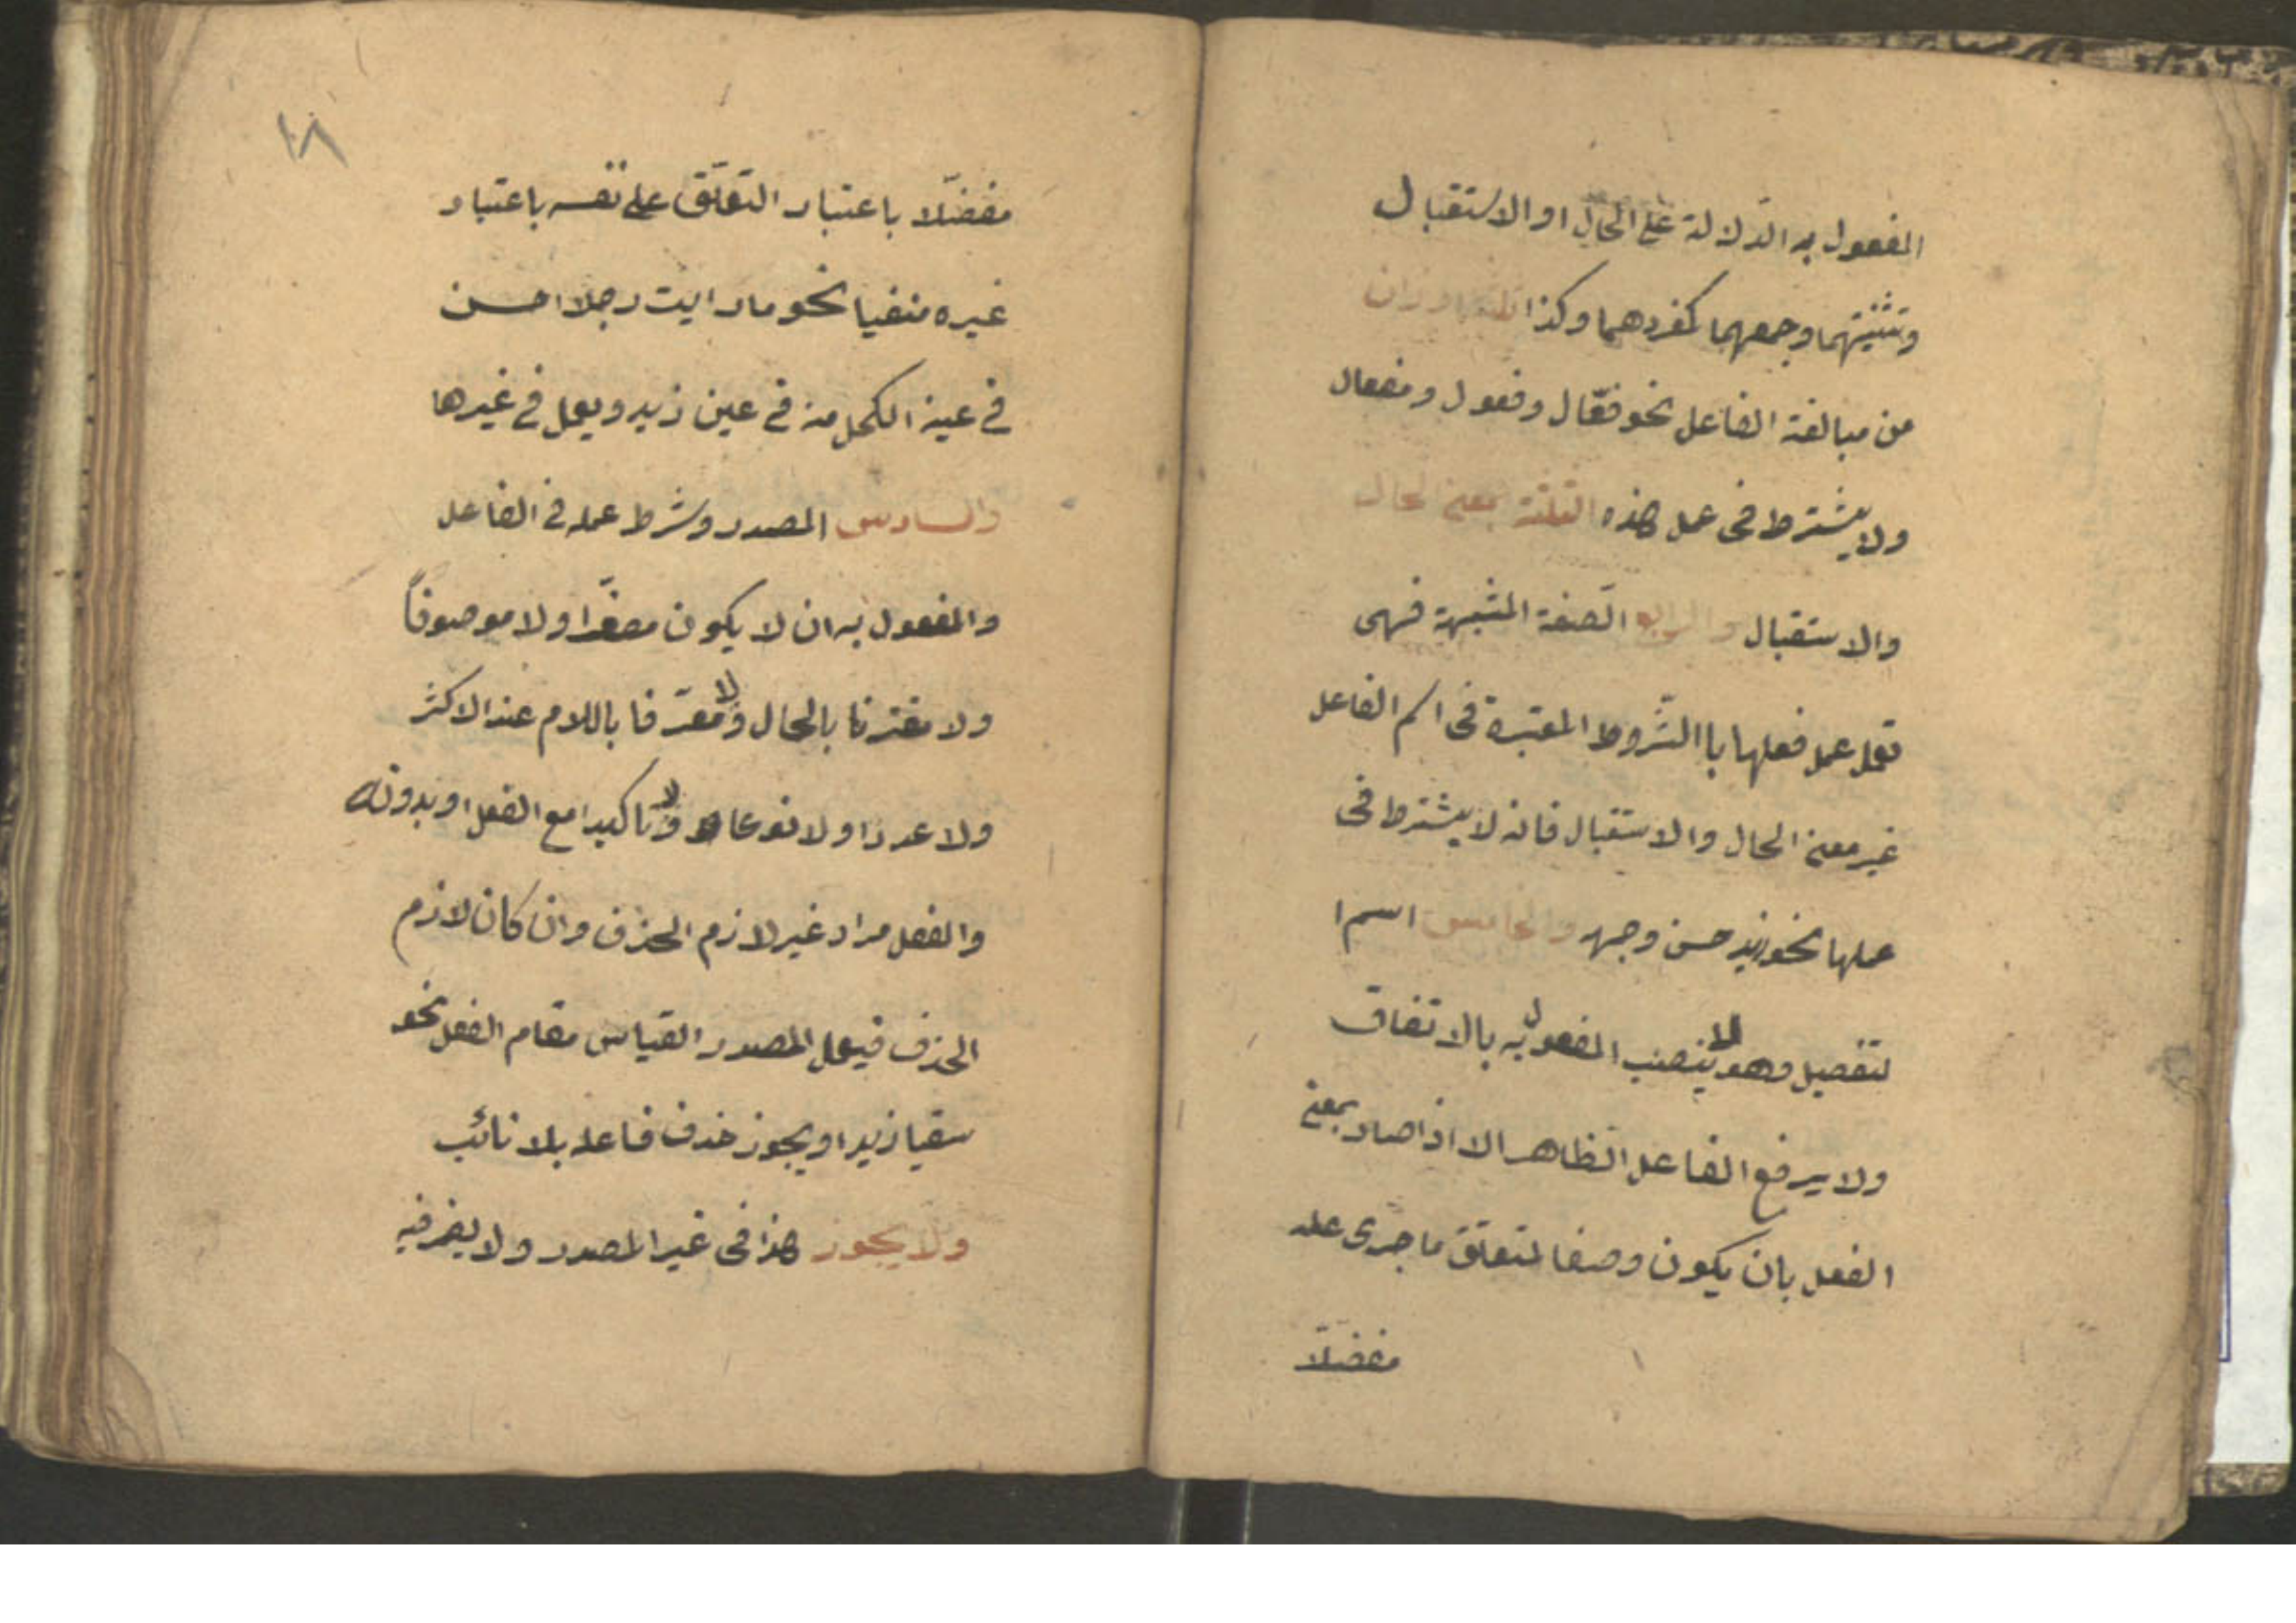 المفعول به الدّلالة على الحال او الاستقبال
وتثنيتهما وجمعهما كمفردهما وكذا ثلثة اوزان
من مبالغة الفاعل نحو فعّال وفعول ومفعال
ولا يشترط فى عمل هذه الثلثة معنى الحال
والاستقبال والرابع الصّفة المشبهة فهى
تعمل عمل فعلها باالشّروط المعتبرة فى اسم الفاعل
غير معنى الحال والاستقبال فانه لا يشترط فى
عملها نحو زيد حسن وجهه والخامس اسم ا
لتفصيل وهو لا ينصب المفعول به بالاتفاق
ولا يرفع الفاعل الظاهر الا اذا صار بمعنى
الفعل بان يكون وصفا لمتعلق ما جرى عليه
مفضلّا
١٨
مفضّلا باعتبار التعلّق على نفسه باعتبار
غيره منفيا نحو ما رايت رجلا احسن
فى عينه الكحل منه فى عين زيد ويعمل فى غيرها
والسادس المصدر وشرط عمله فى الفاعل
والمفعول به ان لا يكون مصغّرا ولا موصوفاً
ولا مقترنا بالحال ولا معرّفا باللام عند الاكثر
ولا عددا ولا نوعا ولا تاكيدا مع الفعل او بدونه
والفعل مراد غير لازم الحذف وان كان لازم
الحذف فيعمل المصدر القياس مقام الفعل نحو
سقيا زيدا ويجوز حذف فاعله بلا نائب
ولا يجوز هذا فى غير المصدر ولا يضمر فيه